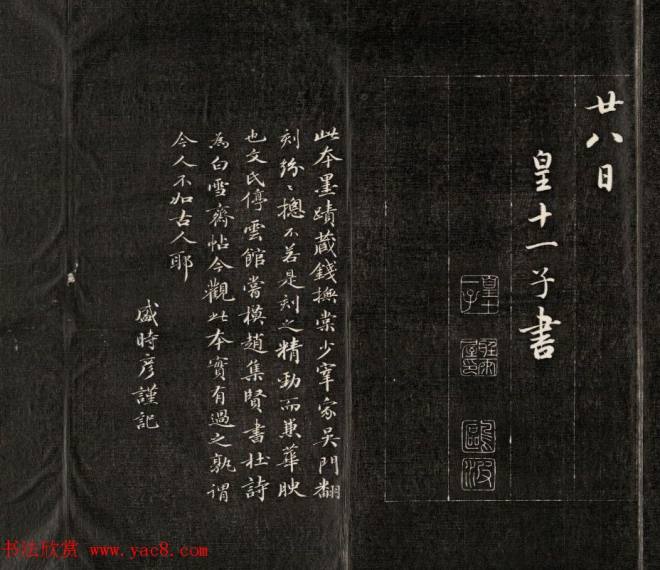 廿八日
皇十一子書
皇十一子
鷗波
此本墨蹟藏錢撫棠少宰家吳門翻
刻紛〻摠不若是刻之精勁而兼華映
也文氏停雲館嘗模趙集賢書杜詩
為白雪齋帖今觀此本實有過之孰謂
今人不如古人耶
盛時彥謹記
书法欣赏 www.yac8.com